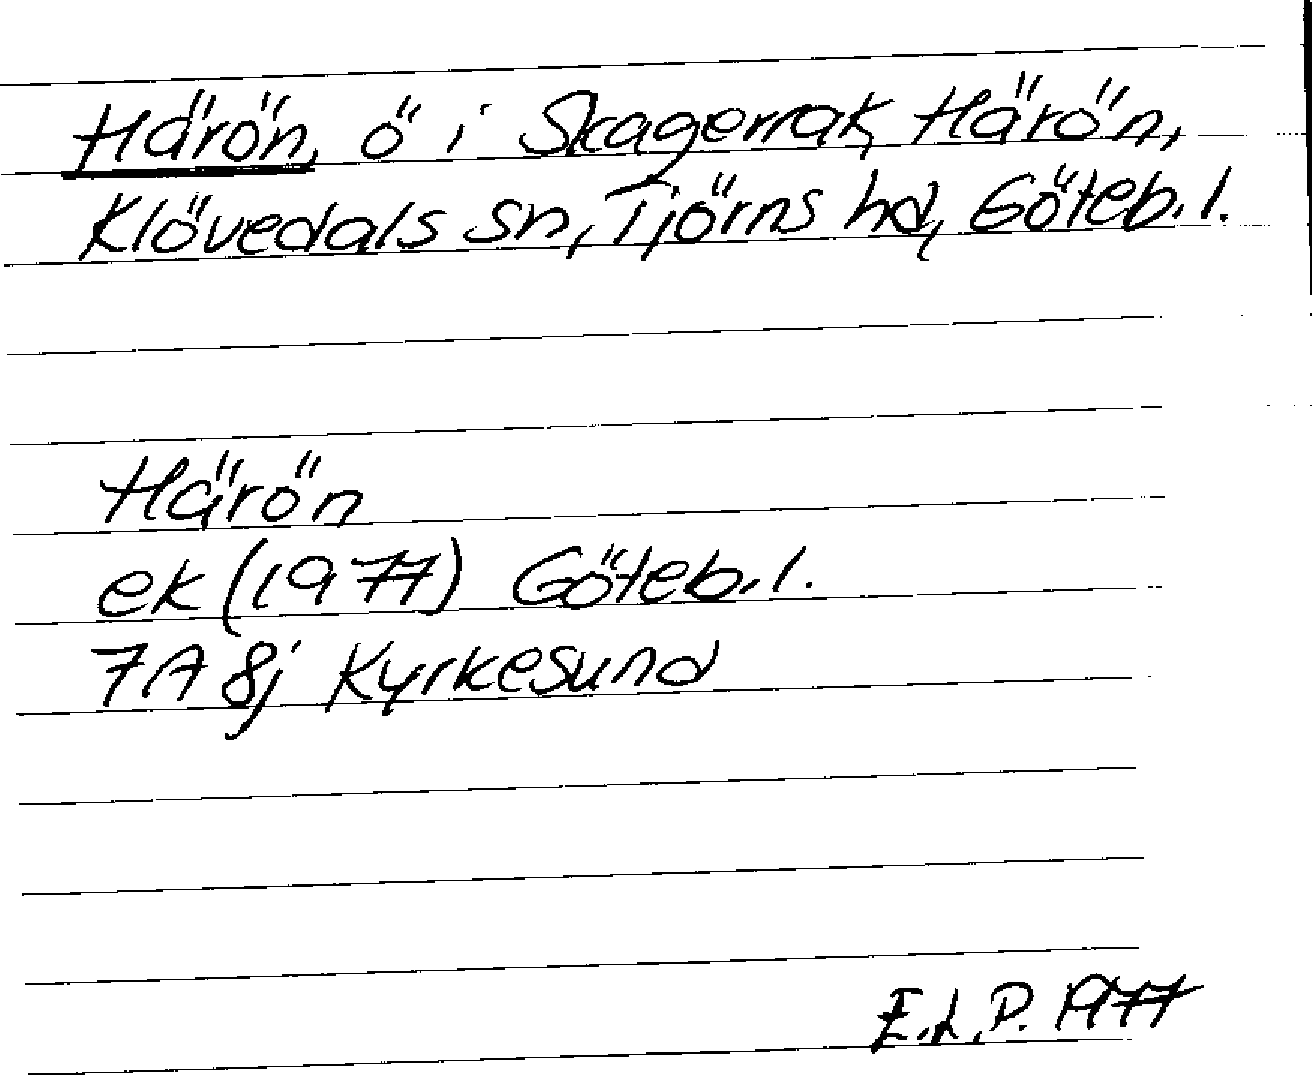 Härön, ö i Skagerrak, Härön,
Klövedals sn, Tjörns hd, Göteb. l.
Härön
ek (1977) Göteb. l.
7A 8j Kyrkesund
E.L.P. 1977